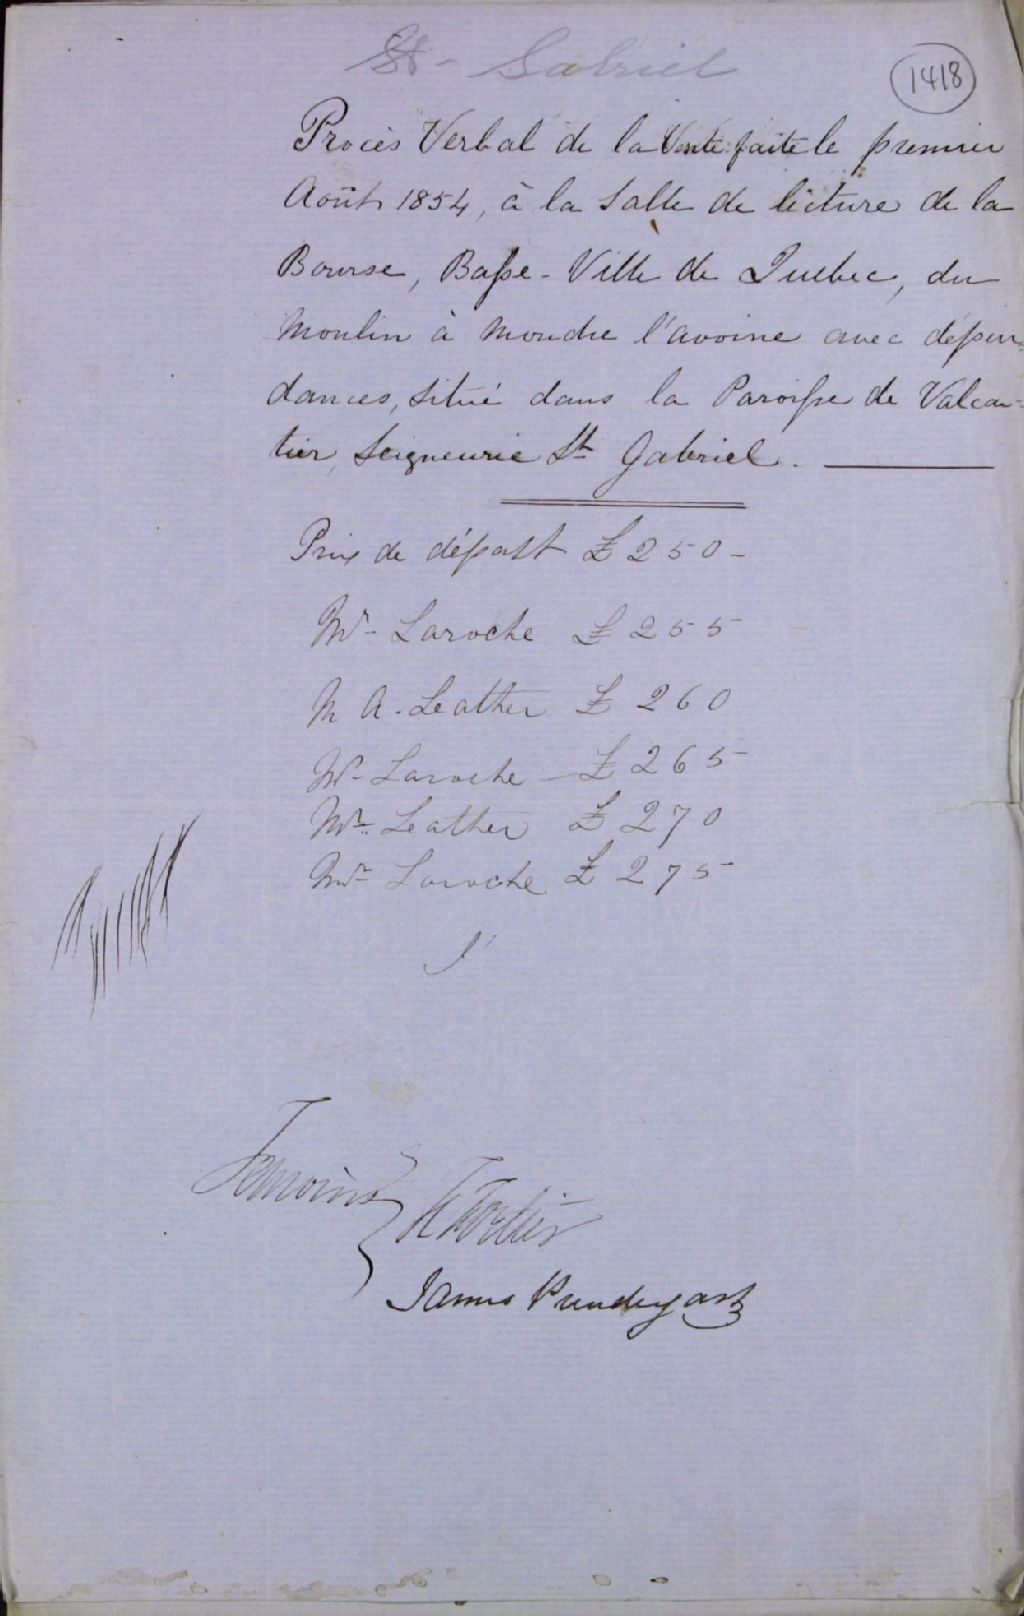 St - Gabriel
1418
Procès Verbal de la Vente faite le premier
Août 1854, à la Salle de lecture de la
Bourse, Basse-Ville de Quebec, du
Moulin à moudre l'avoine avec dépen=
dances, situé dans la Paroisse de Valcar=
tier, Seigneurie St Gabriel.
Prix de départ £ 250 -
Mr - Laroche £ 255
M A. Leather £ 260
Mr - Laroche - £ 265
Mr. Leather £ 270
Mr Laroche £ 275
Temoins
James Prendergast